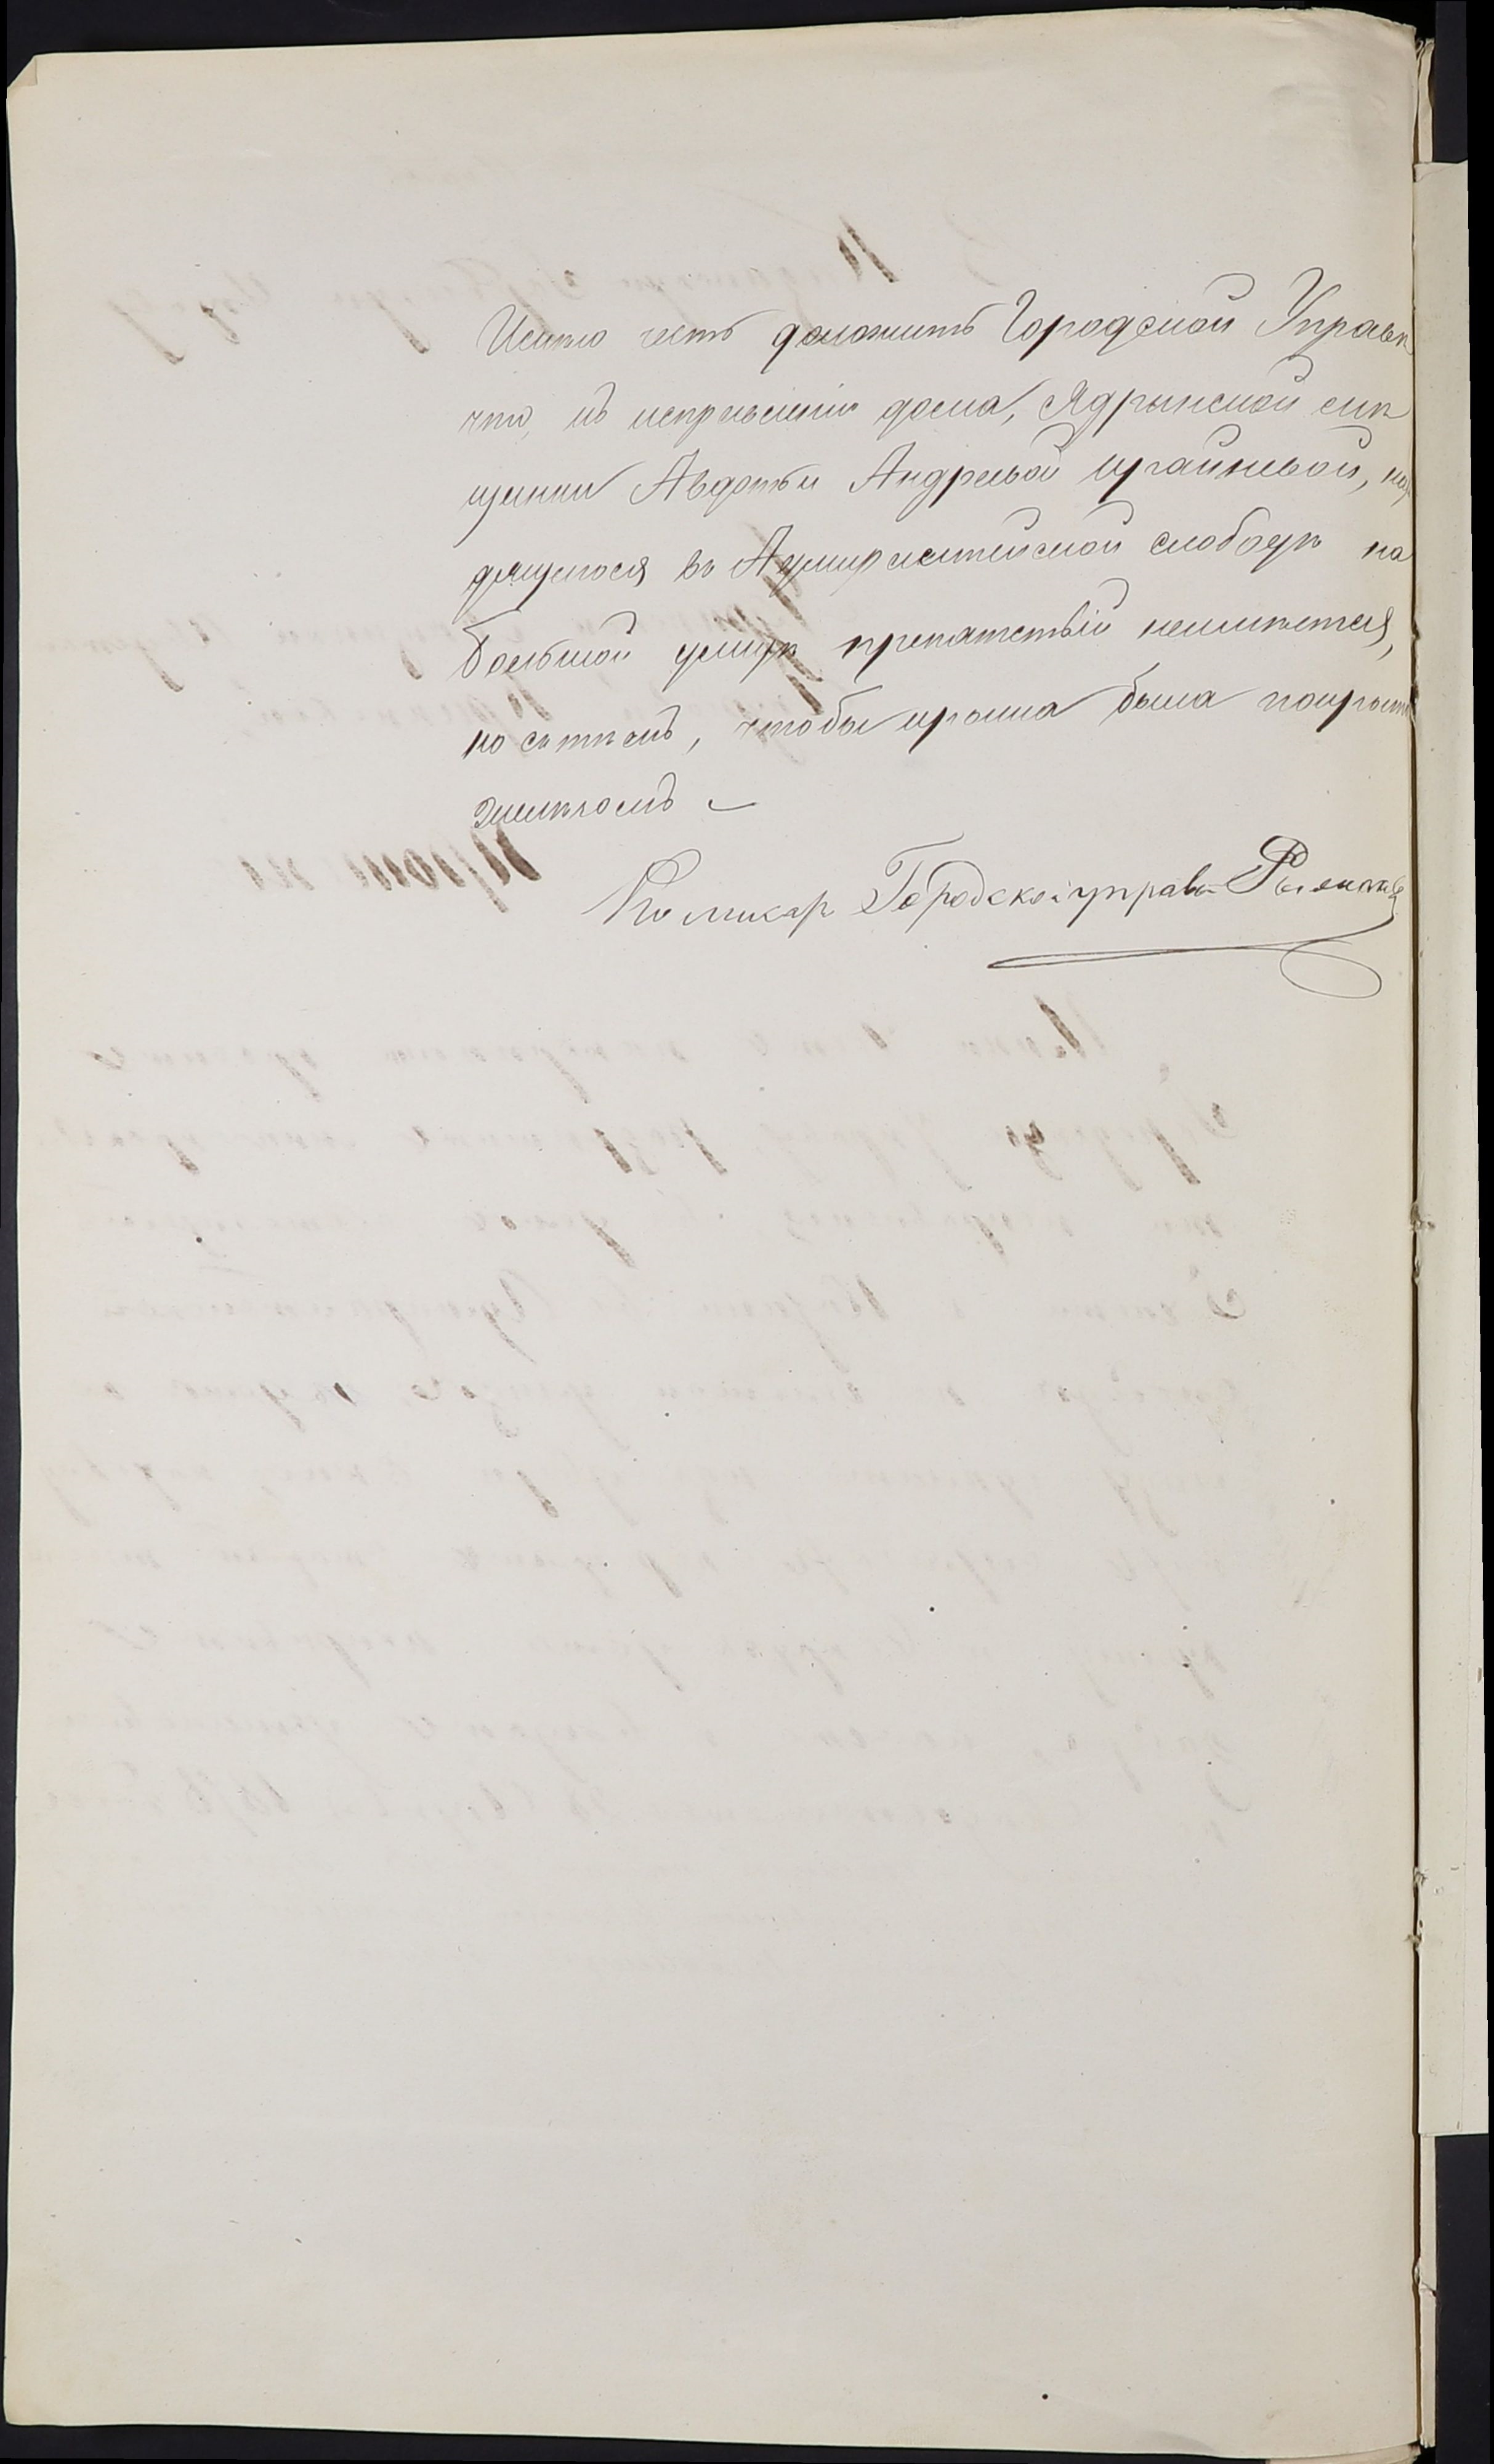 Имѣю честь доложить Городской Управѣ
что, къ исправленiю дома, Ядрынской мѣ
щанки Авдотьи Андреевой Крайневой, нах
дящегося въ Адмиралтейской слободѣ на
Большой улицѣ препятствiй неимѣется,
но сътѣмъ, чтобы крыша была покрыта
желѣзомъ
Комисар Городской управы